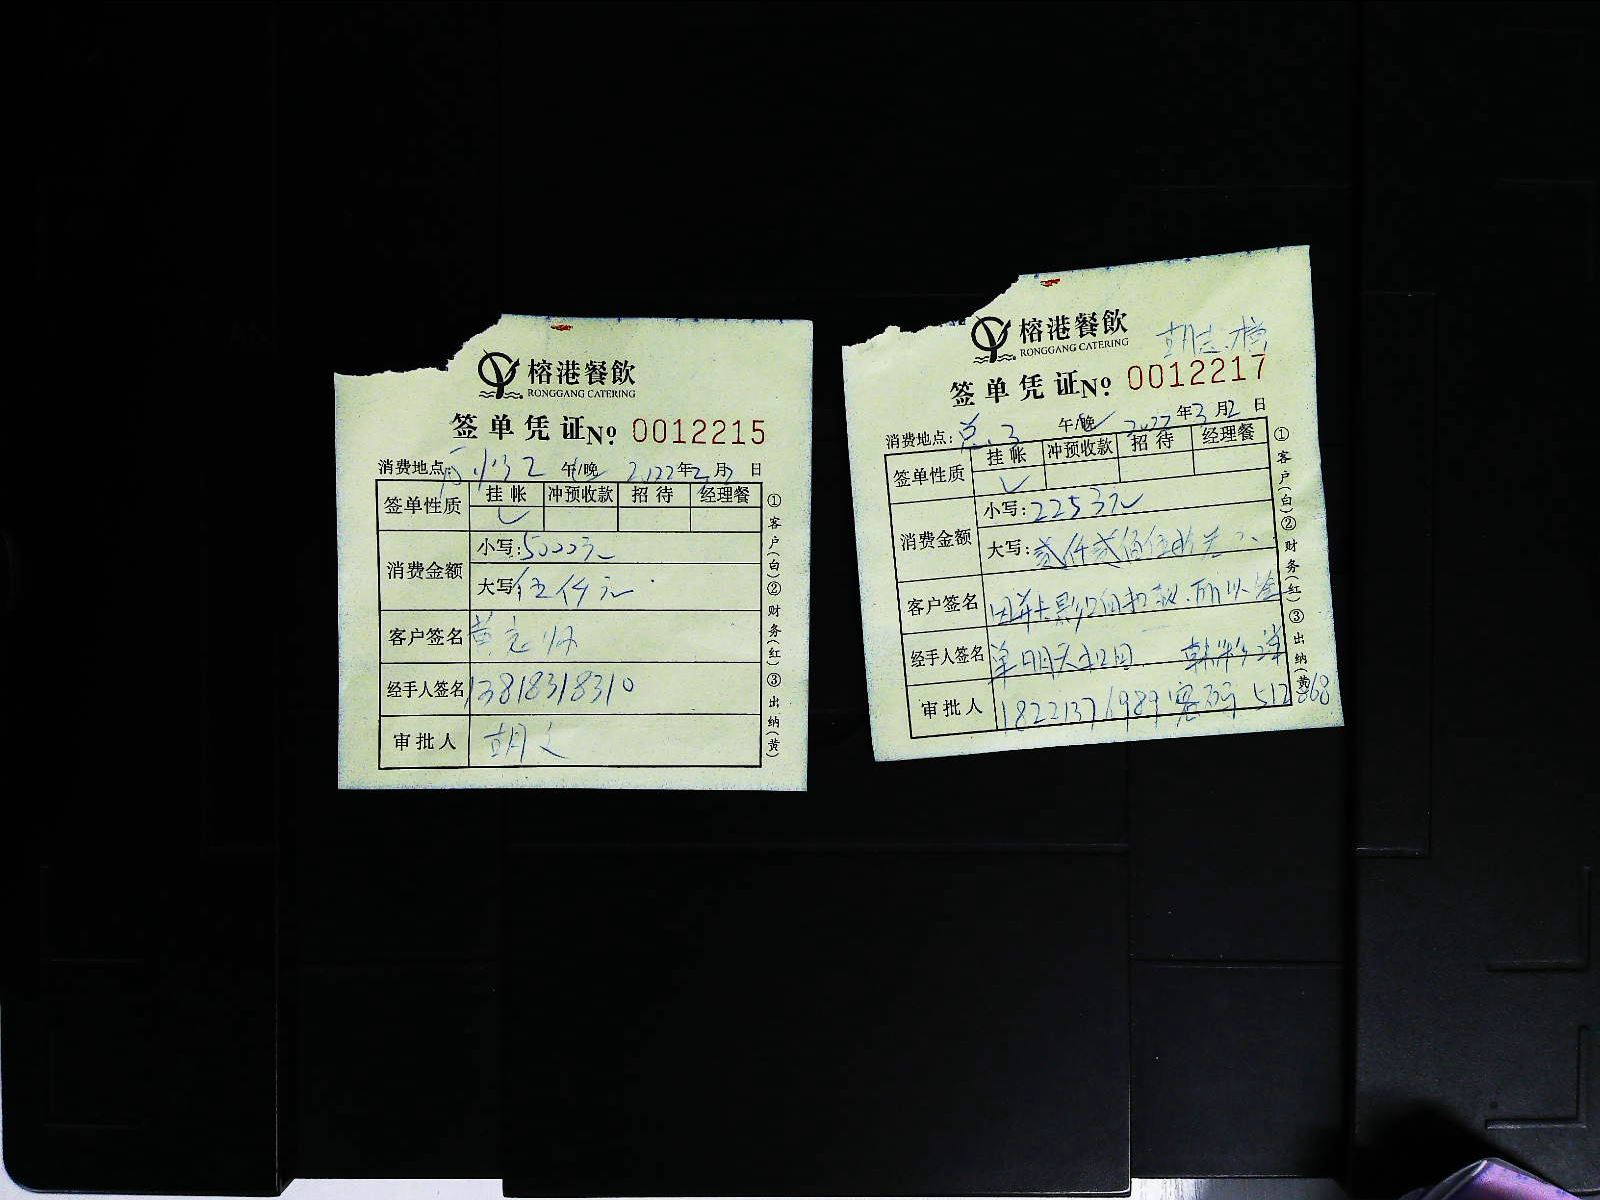 榕港餐飲
RONGGANG CATERING
签单凭证 No 0012215
消费地点: 午/晚 2022年2月2日
签单性质 挂帐 冲预收款 招待 经理餐
消费金额
小写:5000元
大写 伍仟元
客户签名
经手人签名 13818318310
审批人
①客户(白)②财务(红)③出纳(黄)
榕港餐飲
RONGGANG CATERING
签单凭证 No 0012217
消费地点: 总.3 午/晚 2022年3月2日
签单性质 挂帐 冲预收款 招待 经理餐
消费金额
小写:2253元
大写: 贰仟贰佰伍拾
客户签名
经手人签名 单明天扣回
审批人 18221371989 密码 512868
①客户(白)②财务(红)③出纳(黄)